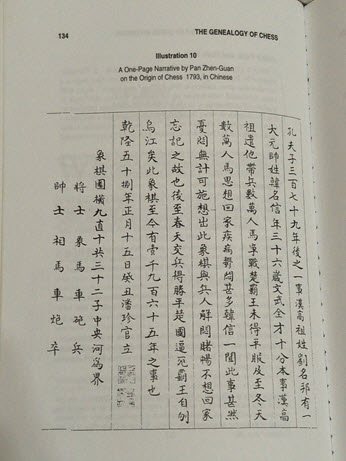 134
THE GENEALOGY OF CHESS
Illustration 10
A One-Page Narrative by Pan Zhen-Guan
on the Origin of Chess 1793, in Chinese
孔夫子三百七十九年後之一事漢高祖姓劉名邦有一
大元帥姓韓名信年三十六歲文武全才十分本事漢高
祖遣他帶兵數萬人馬爭戰楚霸王未得平服及至冬天
數萬人馬思想回家疾病鬱悶甚多韓信一聞此事甚然
憂悶無計可施想出此象棋與兵人解悶賭暢不想回家
忘記之故也後至春天交兵得勝平楚國逼死霸王自刎
烏江矣此象棋至今有壹千九百六十五年之事也
乾隆五十捌年正月十五日癸丑潘珍官立
象棋圖橫九直十共三十二子中央河為界
將士象馬車砲兵
帥士相馬車炮卒